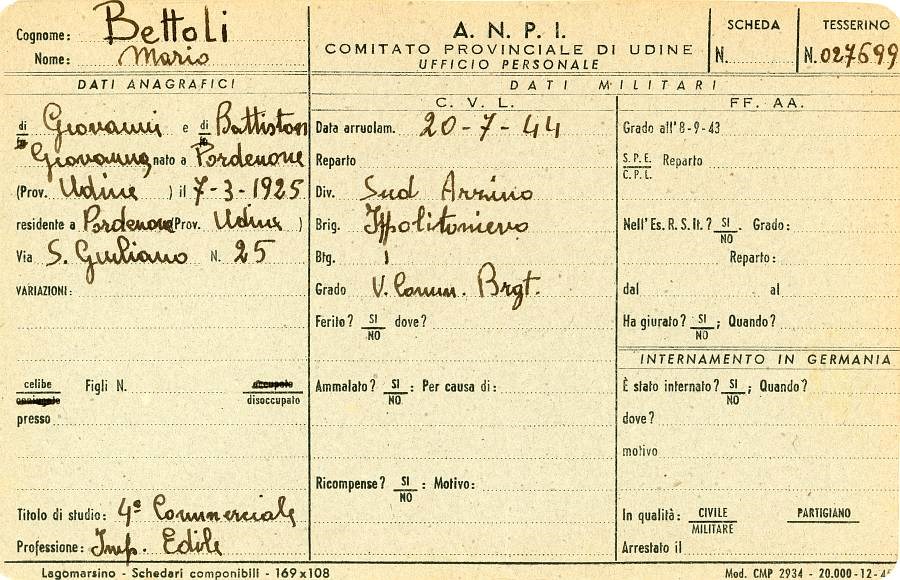 Cognome: Bettoli
Nome: Mario
A. N. P. I.
COMITATO PROVINCIALE DI UDINE
UFFICIO PERSONALE
SCHEDA
N.
TESSERINO
N. 027699
DATI ANAGRAFICI
di Giovanni e di Battiston
Giovanna nato a Pordenone
(Prov. Udine ) il 7-3-1925
residente a Pordenone (Prov. Udine )
Via S. Giuliano N. 25
VARIAZIONI:
celibe Figli N. occupato
coniugato disoccupato
presso
Titolo di studio: 4ª Commerciale
Professione: Imp. Edile
DATI MILITARI
C. V. L.
Data arruolam. 20-7-44
Reparto
Div. Sud Arzino
Brig. Ippolitonievo
Btg. 1
Grado V. Comm. Brgt.
Ferito? SI NO dove?
Ammalato? SI NO : Per causa di:
Ricompense? SI NO : Motivo:
FF. AA.
Grado all'8-9-43
S.P.E. C.P.L. Reparto
Nell'Es. R. S. It.? SI NO . Grado:
Reparto:
dal al
Ha giurato? SI NO ; Quando?
INTERNAMENTO IN GERMANIA
È stato internato? SI NO ; Quando?
dove?
motivo
In qualità: CIVILE MILITARE PARTIGIANO
Arrestato il
Lagomarsino - Schedari componibili - 169x108
Mod. CMP 2934 - 20.000-12-45